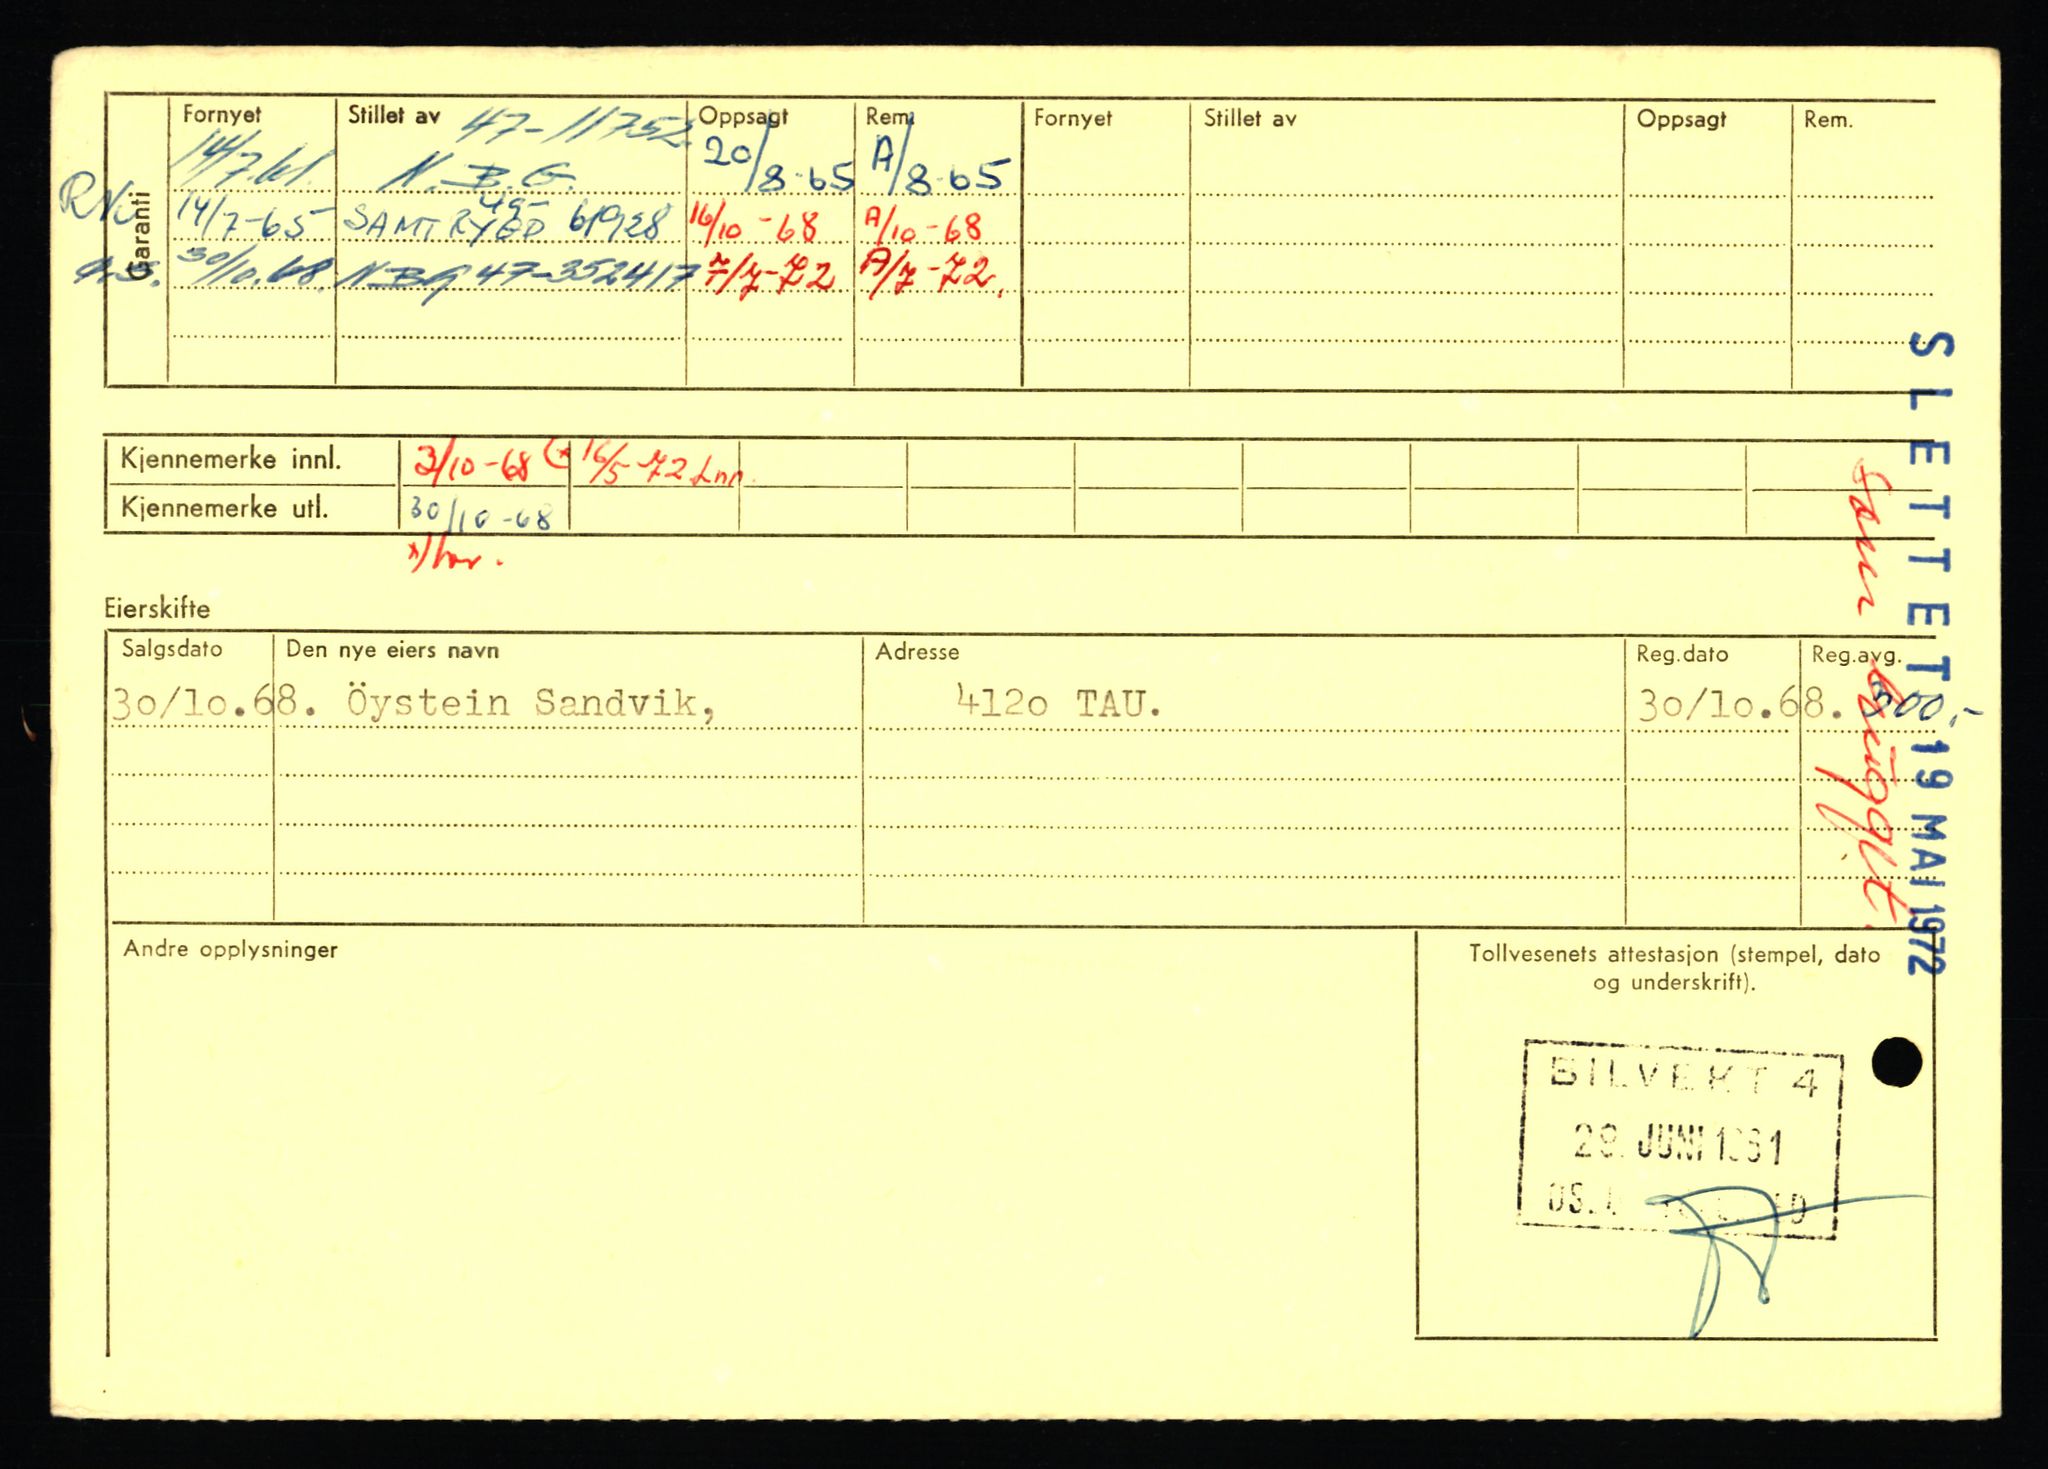 Garanti
Fornyet Stillet av Oppsagt Rem. Fornyet Stillet av Oppsagt Rem.
47-11752.
14/7.61. N.B.G. 20/8-65 A/8-65
14/7-65 SAMTRYGD 619928 16/10-68 A/10-68
30/10.68. NBG 47-352417 7/7-72 A/7-72.
Kjennemerke innl. 3/10-68 16/5-72 Inn.
Kjennemerke utl. 30/10-68
Eierskifte
Salgsdato Den nye eiers navn Adresse Reg.dato Reg.avg.
30/10.68. Öystein Sandvik, 4120 TAU. 30/10.68. 500,-
SLETTET 19 MAI 1972
Som
Andre opplysninger
Tollvesenets attestasjon (stempel, dato
og underskrift).
BILVEKT 4
JUNI 1961